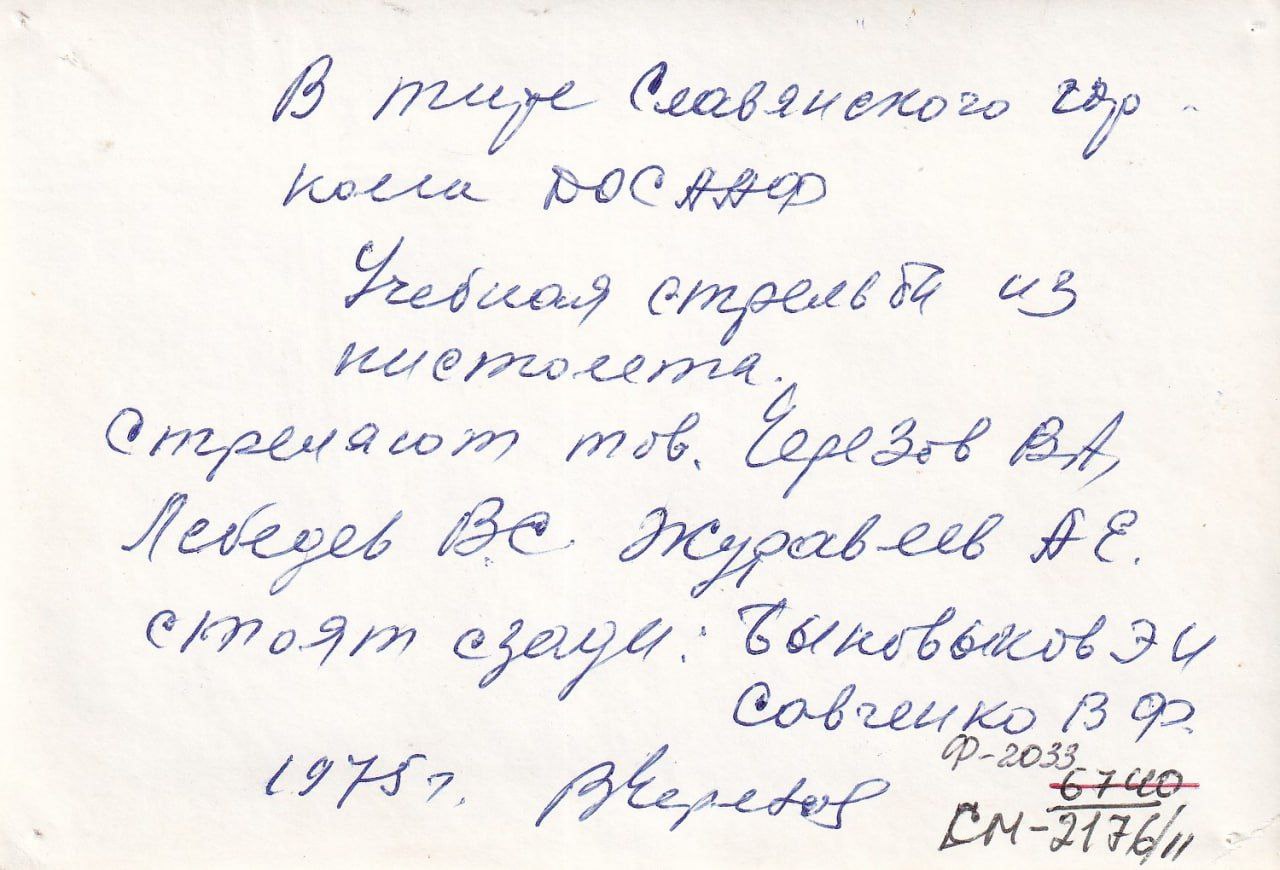 В тире Славянского гор-
кома ДОСААФ
Учебная стрельба из
пистолета.
Стреляют тов. Черезов В.А,
Лебедев В.С. Журавлев А.Е.
стоят сзади: Быковыков Э И
Савченко В Ф.
1975 г. ВЧерезов
Ф-2033
6740
СМ-2176/11